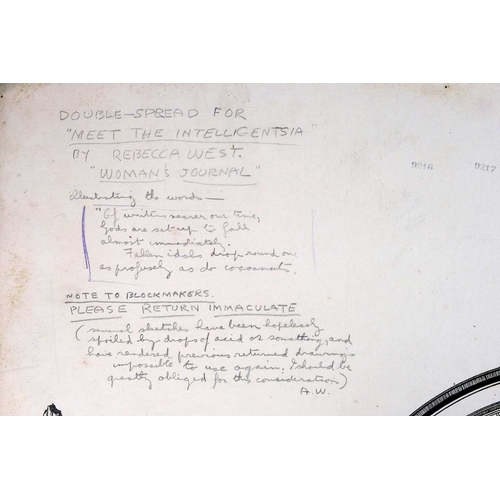 DOUBLE-SPREAD FOR
"MEET THE INTELLIGENTSIA"
BY REBECCA WEST.
"WOMAN'S JOURNAL"
9216 9217
illustrating the words—
"Of writers nearer our time,
Gods are set up to fall
almost immediately.
Fallen idols drop round one
as profusely as do cocoanuts.
NOTE TO BLOCKMAKERS.
PLEASE RETURN IMMACULATE
(several sketches have been hopelessly
spoiled by drops of acid or something, and
have rendered previous returned drawings
impossible to use again. I should be
greatly obliged for this consideration)
A.W.